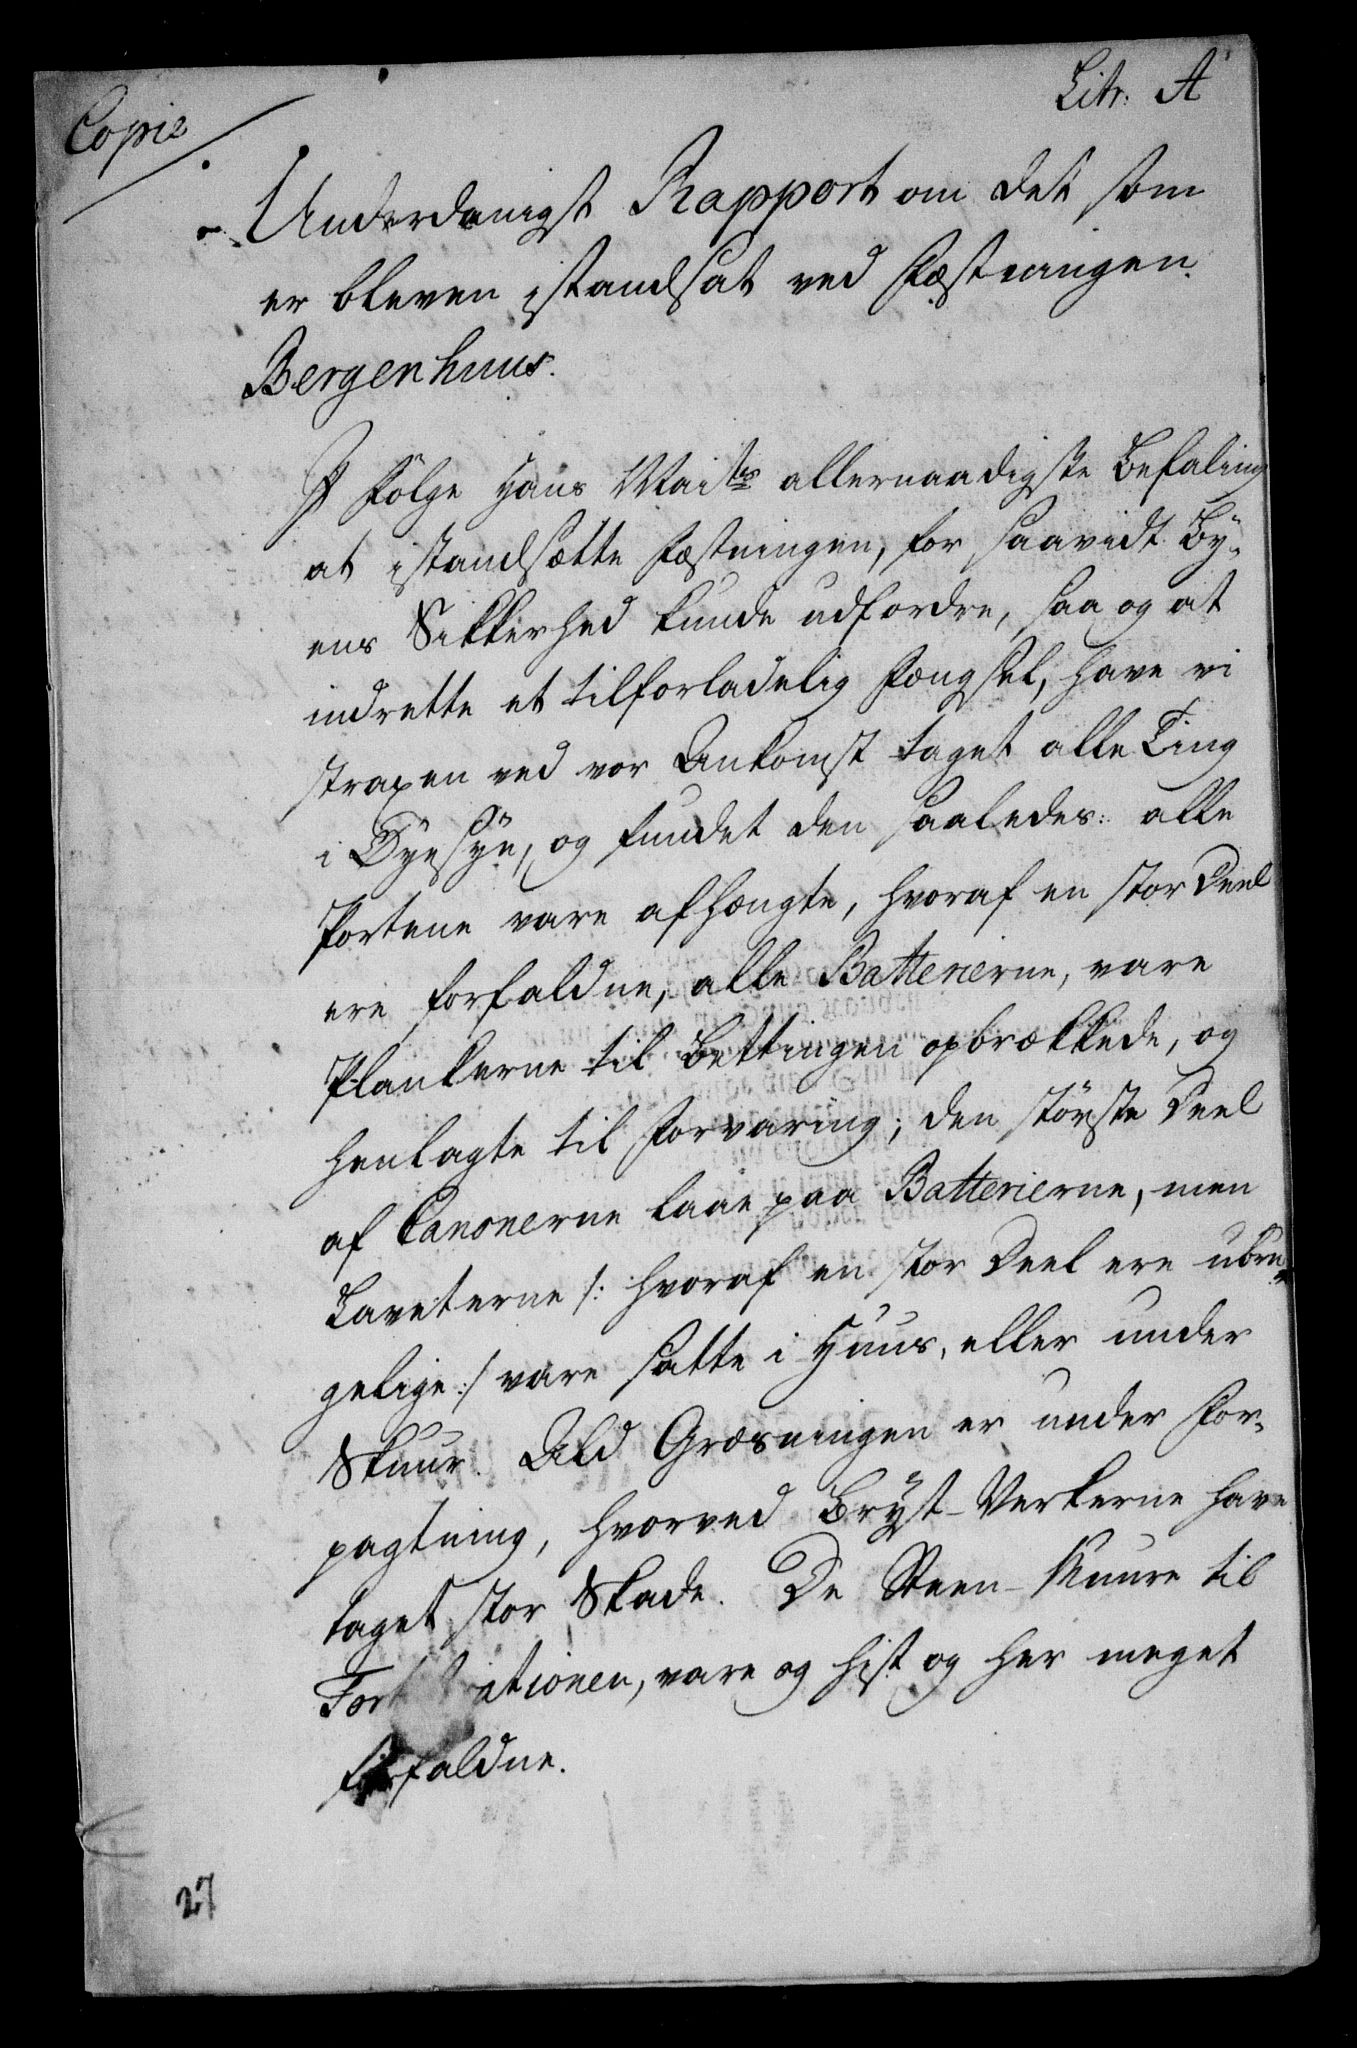 Litr: A
Copie
Underdanigst Rapport om det som
er bleven istandsat ved Fæstningen
Bergenhuus.
I Følge Hans Mai.ts allernaadigste Befaling
at istandsætte Fæstningen, for saavidt By-
ens Sikkerhed kunde udfordre, saa og at
indrette et tilforladelig Fængsel, have vi
straxen ved vor Ankomst taget alle Ting
i Øyesyn, og fundet den saaledes: alle
Portene vare afhængte, hvoraf en stor Deel
ere forfaldne, alle Batterierne, vare
Plankerne til Bettingen opbrækkede, og
henlagte til Forvaring; den störste Deel
af Canonerne laae paa Batterierne, men
Laveterne /: hvoraf en stor Deel ere ubru-
gelige :/ vare satte i Huus, eller under
Skuur. Ald Græsningen er under For-
pagtning, hvorved Bryst-Verkerne have
taget stor Skade. De Steen-Muure til
Fortificationen, vare og hist og her meget
forfaldne.
27